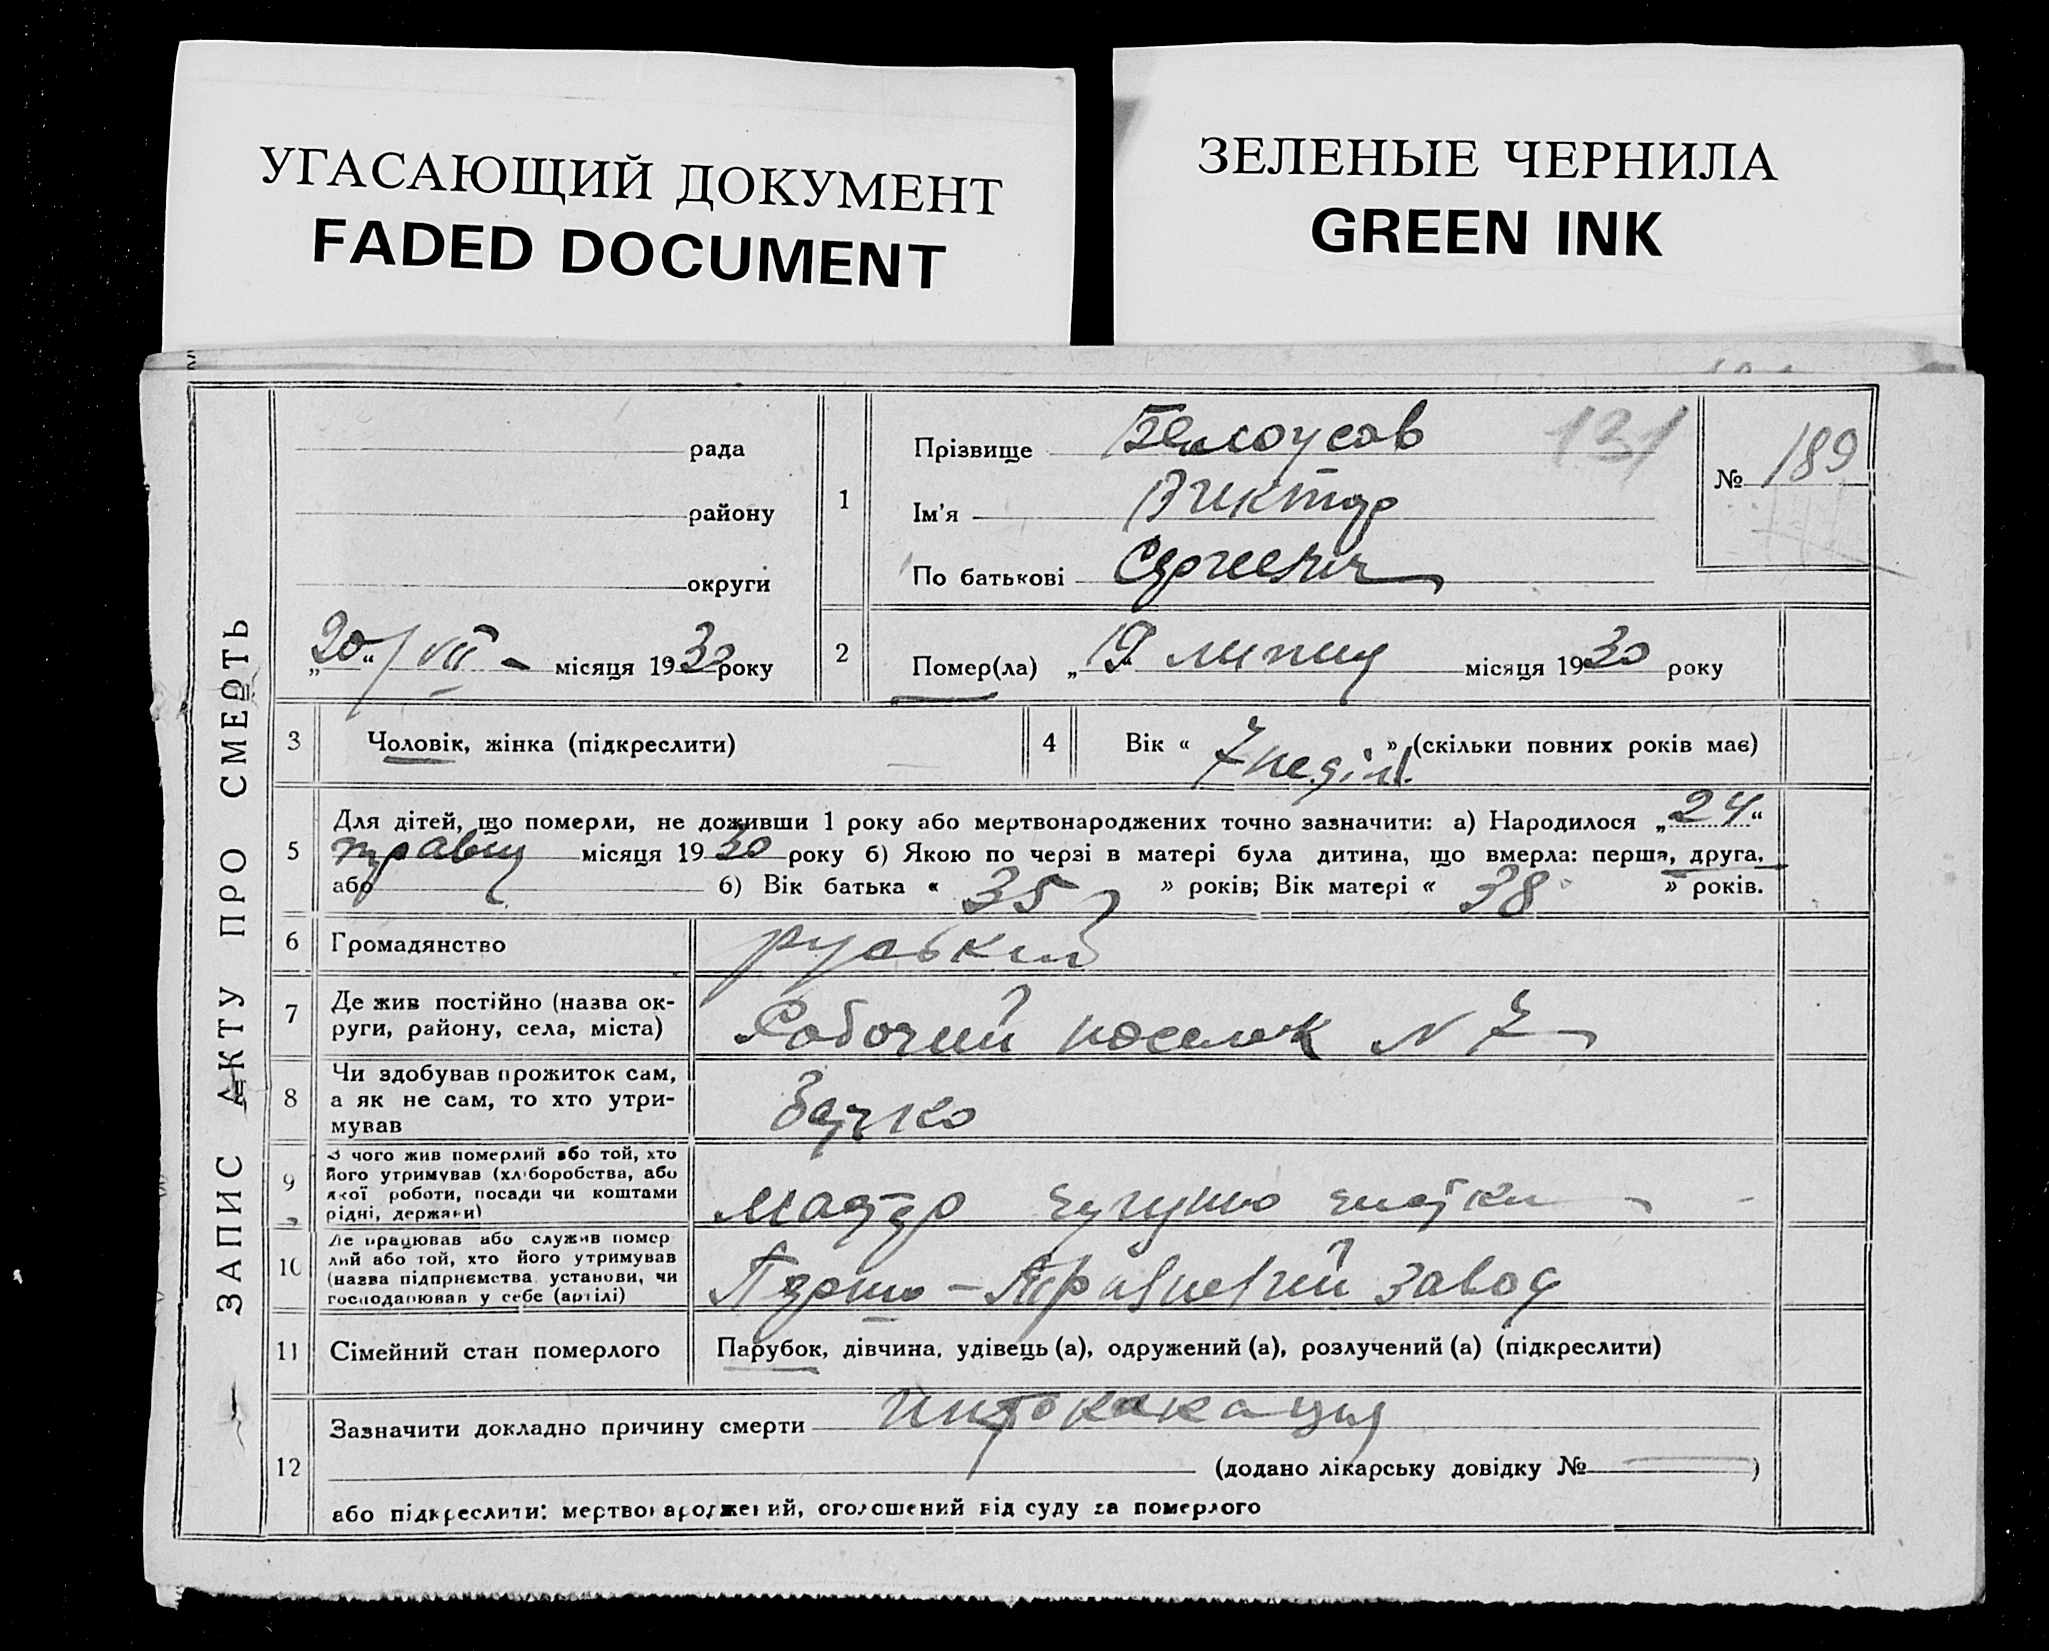 УГАСАЮЩИЙ ДОКУМЕНТ
FADED DOCUMENT
ЗЕЛЕНЫЕ ЧЕРНИЛА
GREEN INK
ЗАПИС АКТУ ПРО СМЕРТЬ
рада
району
округи
„20“ / VII - місяця 1930 року
1
Прізвище Белоусов 131
Ім'я Виктор
По батькові Сергеевич
№ 189
2 Помер(ла) „19“ липня місяця 1930 року
3 Чоловік, жінка (підкреслити)
4 Вік « 7 неділ. » (скільки повних років має)
5 Для дітей, що померли, не доживши 1 року або мертвонароджених точно зазначити: а) Народилося „24“
травня місяця 1930 року б) Якою по черзі в матері була дитина, що вмерла: перша, друга,
або б) Вік батька « 35 » років; Вік матері « 38 » років.
6 Громадянство руський
7 Де жив постійно (назва ок-
руги, району, села, міста) Рабочий поселок N 7
8 Чи здобував прожиток сам,
а як не сам, то хто утри-
мував Батько
9 З чого жив померлий або той, хто
його утримував (хліборобства, або
якої роботи, посади чи коштами
рідні, держави) мастер чугунно
10 Де працював або служив помер
лий або той, хто його утримував
(назва підприємства установи, чи
господарював у себе (артілі) завод
11 Сімейний стан померлого Парубок, дівчина, удівець (а), одружений (а), розлучений (а) (підкреслити)
12 Зазначити докладно причину смерти
(додано лікарську довідку № )
або підкреслити: мертвонароджений, оголошений від суду за померлого